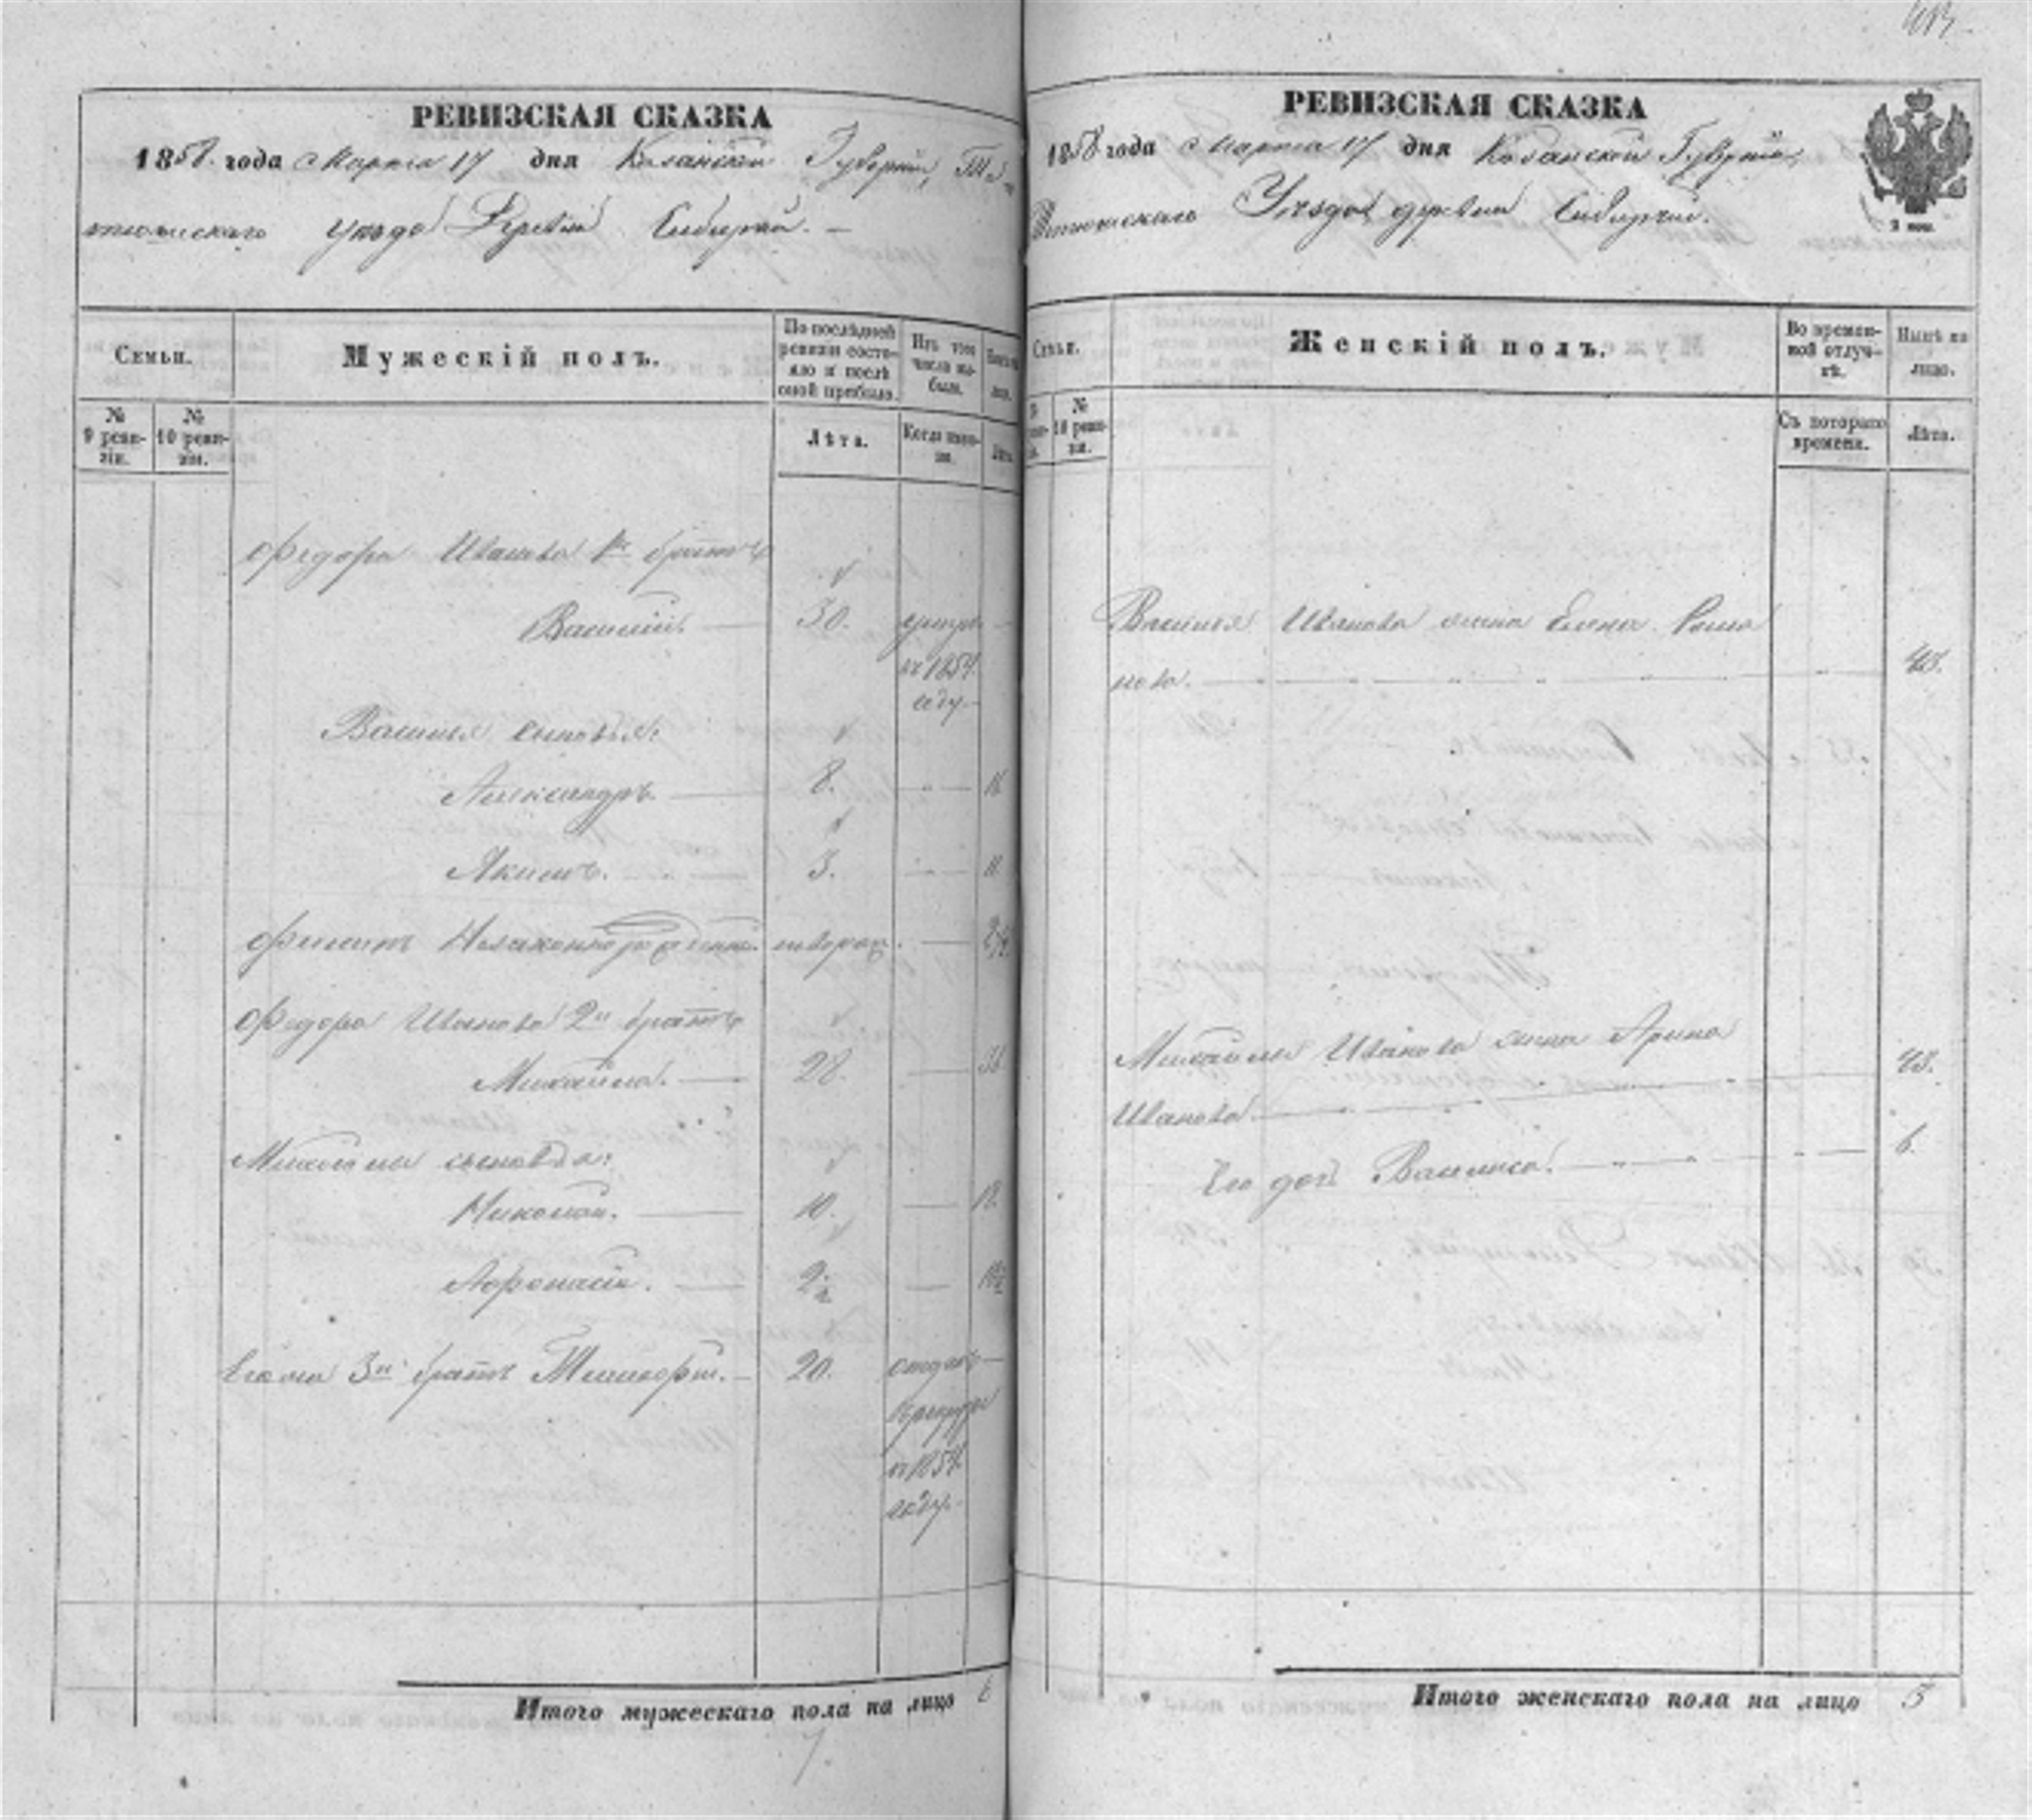 РЕВИЗСКАЯ СКАЗКА
1858 года Марта 17 дня Казанской Губерніи, Те-
тюшскаго уезда Деревни
Семьи.
Мужескій полъ.
По послѣдней ревизіи состояло и послѣ оной прибыло.
Изъ того числа выбыло.
№ 9 ревизіи.
№ 10 ревизіи.
Лѣта.
Когда именно.
Лѣта.
Федора Иванова 1й братъ
Василій. 30. умеръ
въ 1854.
году
Василья сыновья:
Александръ. 8. 16
Якимъ. 3. 11
Незаконнорожден.
Федора Иванова 2й братъ
Михайла. 28. 36
Михайлы сыновья:
Николай. 10. 18.
Афонасій. 2½ 10½
Его же 3й братъ 20. отданъ
въ рекруты
въ 1854.
году.
Итого мужескаго пола на лицо 6
7.
РЕВИЗСКАЯ СКАЗКА
1858 года Марта 17 дня Казанской Губерніи,
Тетюшскаго Уезда деревни
Семьи.
Женскій полъ.
Во временной отлучкѣ.
Нынѣ на лицо.
№ 10 ревизіи.
Съ котораго времени.
Лѣта.
Василья Иванова жена Елена Рома
нова. 48.
Михайлы Иванова жена Арина
Иванова 48.
Его дочь Василиса. 6.
Итого женскаго пола на лицо 3